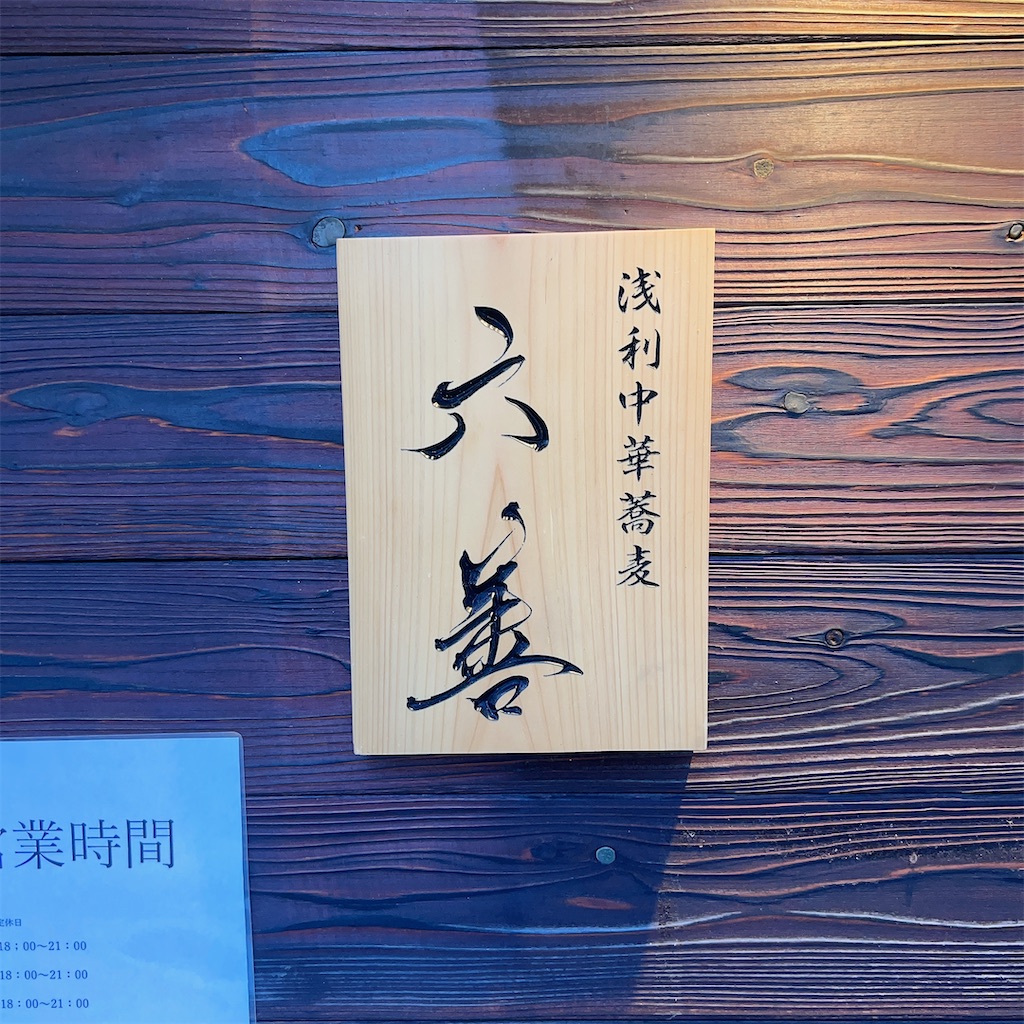 浅利中華蕎麦
六善
営業時間
定休日
18：00〜21：00
18：00〜21：00
18：00〜21：00